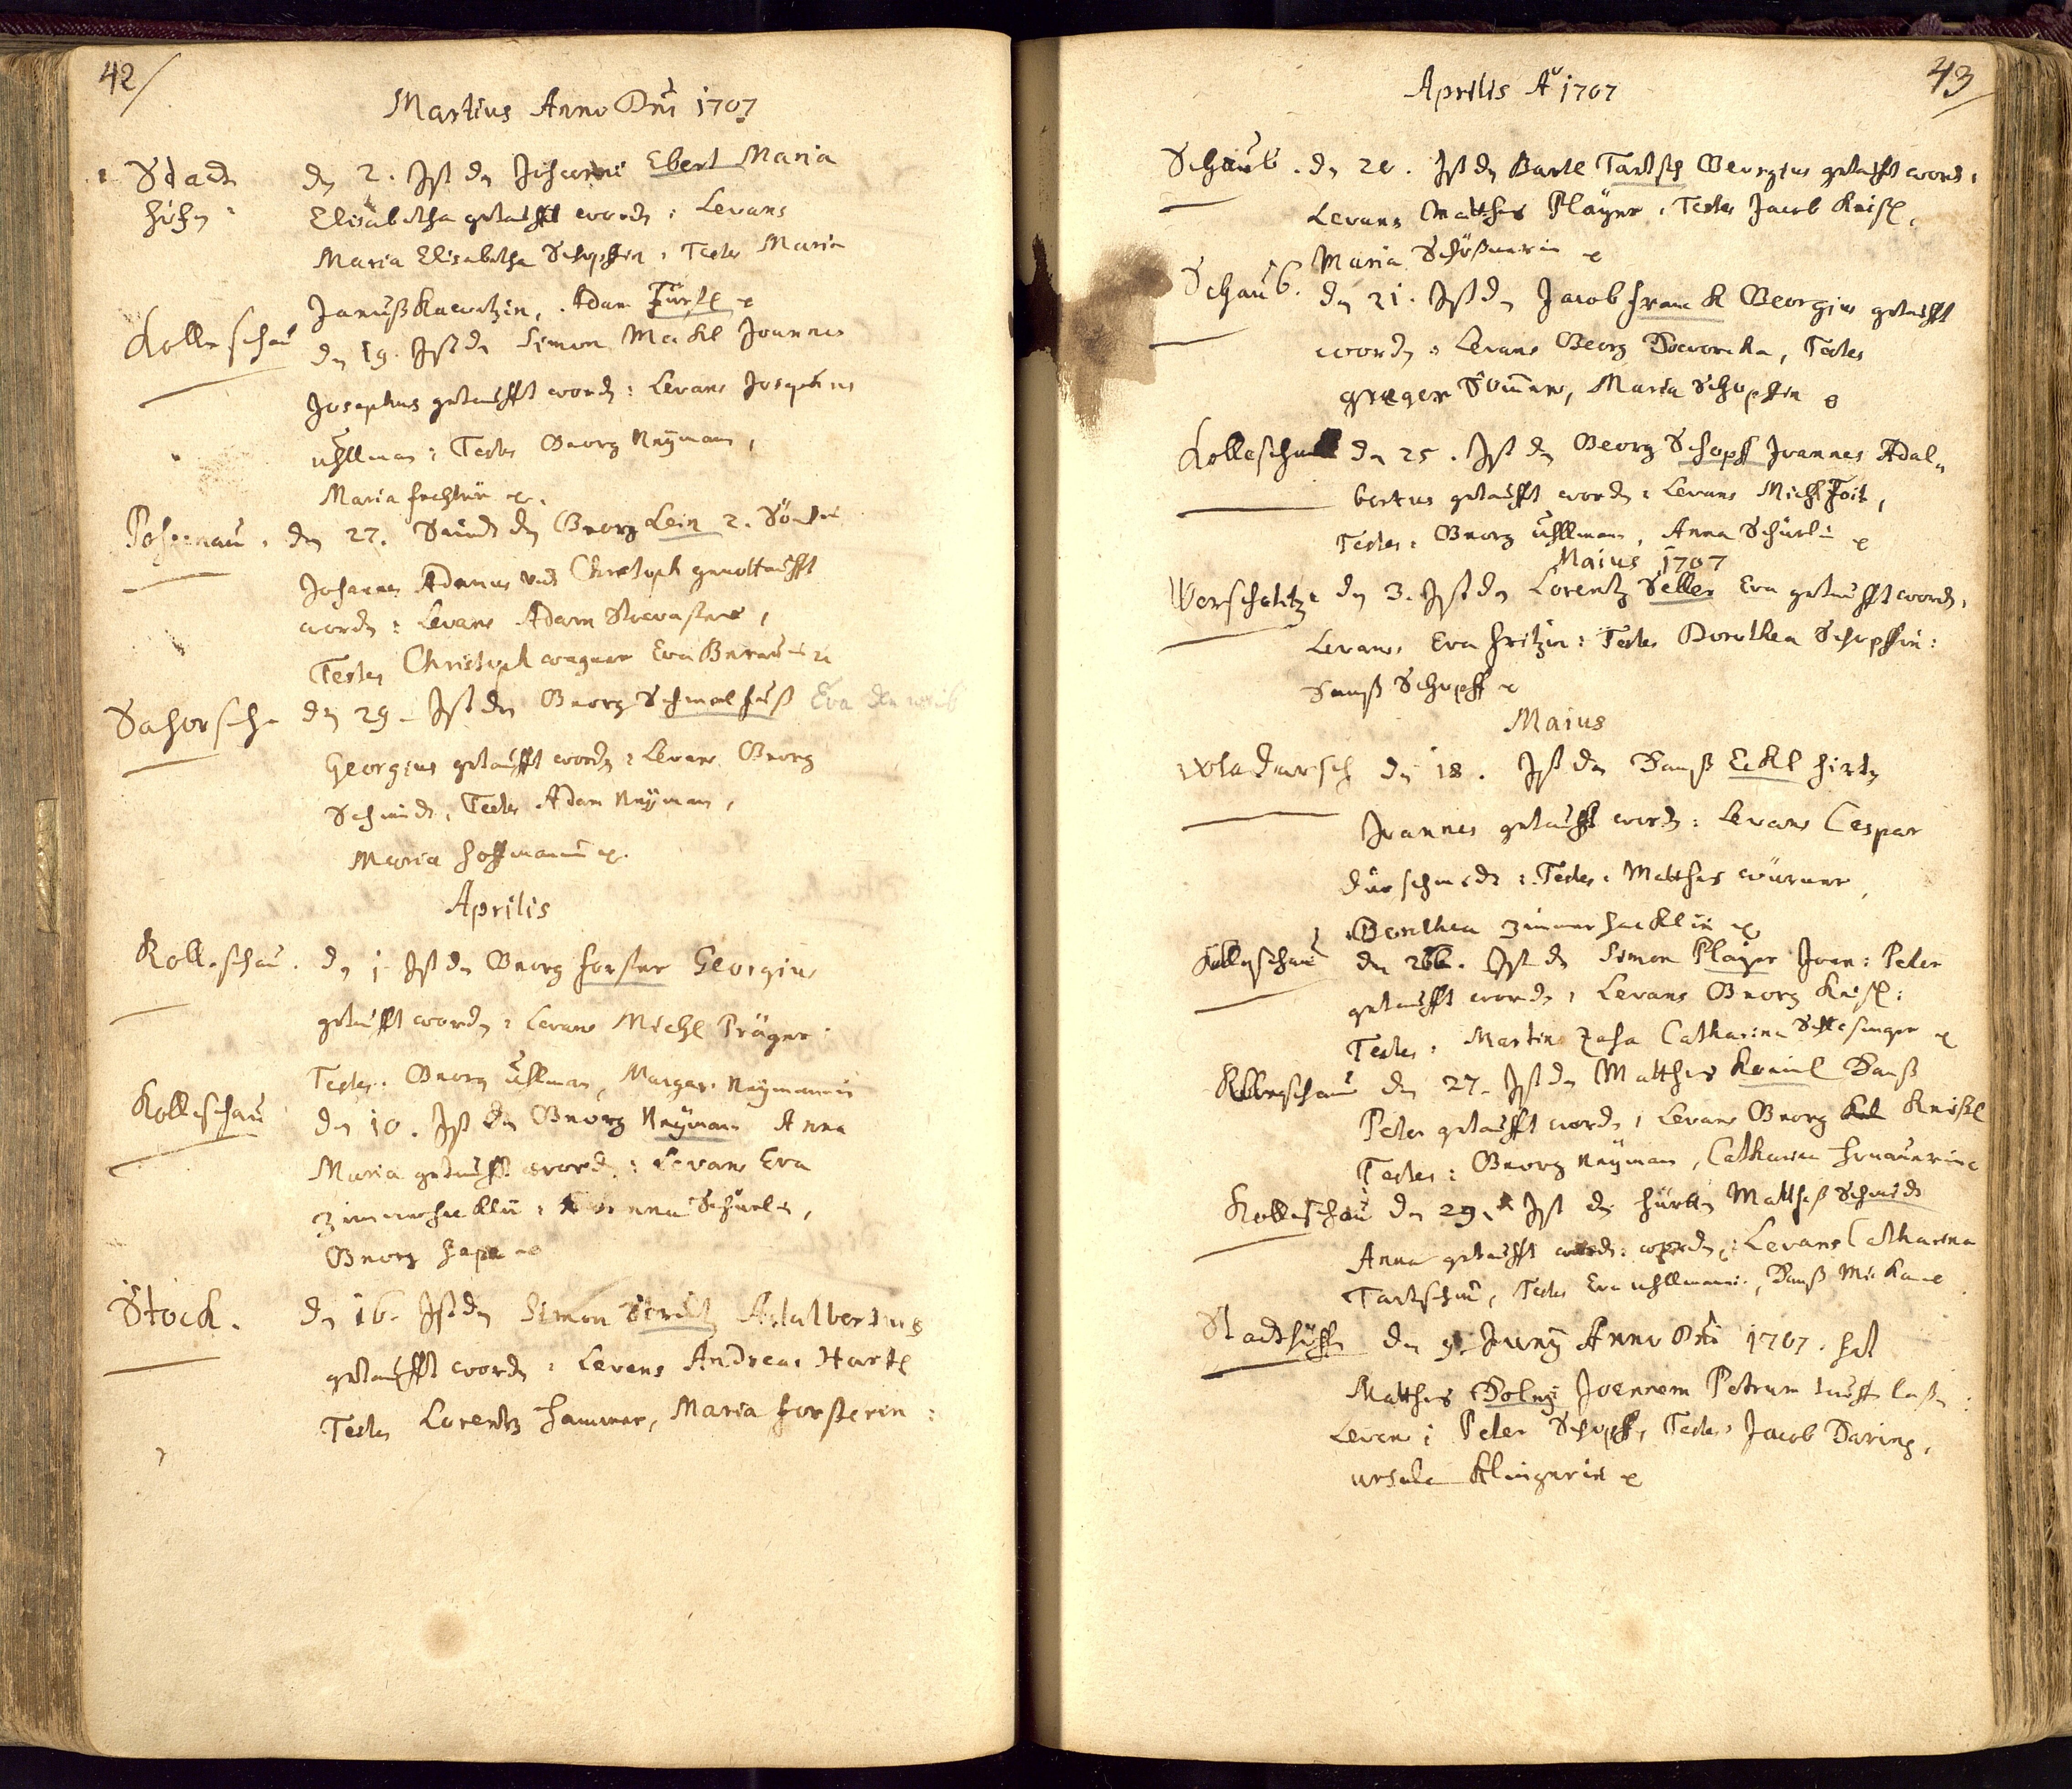 42/
Martius Anno Dni 1707
Stadt den 2. Ist dem Johanni Ebert Maria
höfen Elisabetha getaufft worden: Levans
Maria Elisabetha Schopffin, Testes Maria
Adam Fürtl
Kolleschau den 19. Ist dem Simon Mackl Joannes
Josephus getaufft worden: Levans Josephus
Uhllman: Testes Georg Neÿman,
Maria
den 27. Seind dem Georg Lein 2. Söhne
Johannes Adamus und Christoph genottaufft
worden: Levans Adam
Testes Christoph Wagner Eva
Sahorsch den 29. Ist dem Georg Schmalfuß Eva den weib
Georgius getaufft worden: Levans Georg
Schmidt, Testes Adam Neÿman,
Maria Hoffmanin
Aprilis
Kolleschau. den 1. Ist dem Georg Forster Georgius
getaufft worden: Levans Michl Präger
Testes: Georg Uhllman, Margar: Neÿmanin
Kolleschau den 10. Ist dem Georg Neÿman Anna
Maria getaufft worden: Levans Eva
Zimmerhacklin: Schürlin,
Georg
Stock. den 16. Ist dem Simon Adalbertus
getaufft worden: Levans Andreas Hartl
Testes Lorentz Hammer, Maria Forsterin:
43/
Aprilis Aº 1707
Schaub. den 20. Ist dem Bartl Tartsch Georgius getaufft word:
Levans Matthes Plaÿer, Testes Jacob Keißl,
Maria
Schaub. den 21. Ist dem Jacob Franck Georgius getaufft
worden: Levans Georg Dworcka, Testes
Greger Somer, Maria Schopffin
Kolleschau den 25. Ist dem Georg Schopff Joannes Adal„
bertus getaufft worden: Levans Michl Foit,
Testes: Georg Uhllman, Anna Schürlin
Maius 1707
Worschalitz den 3. Ist dem Lorentz Seller Eva getaufft worden,
Levans Eva Fritzin: Testes Dorothea Schopffin:
Hanß Schopff
Maius
Wladarsch den 18. Ist dem Hanß Eckl Hirten
Joannes getaufft word: Levans Caspar
Dürschmidt: Testes: Matthes Würner,
Dorothea Zimmerhacklin
Kolleschau den 26. Ist dem Simon Plaÿer Joan: Peter
getaufft worden, Levans Georg Keißl:
Testes: Martin Zaha Catharina
Kolleschau den 27. Ist dem Matthes Hanß
Peter getaufft worden, Levans Georg Keißl
Testes: Georg Neÿman, Catharina
Kolleschau den 29. Ist dem Hürtten Mattheß Schmidt
Anna getaufft worden: Levans Catharina
Tartschin, Testes Eva Uhllmanin, Hanß
Stadthöffen den 9. Junÿ Anno Dni 1707. hat
Matthes Joannem Petrum tauffen laßen:
Levans: Peter Schopff, Testes Jacob Daring,
Ursula Klingerin